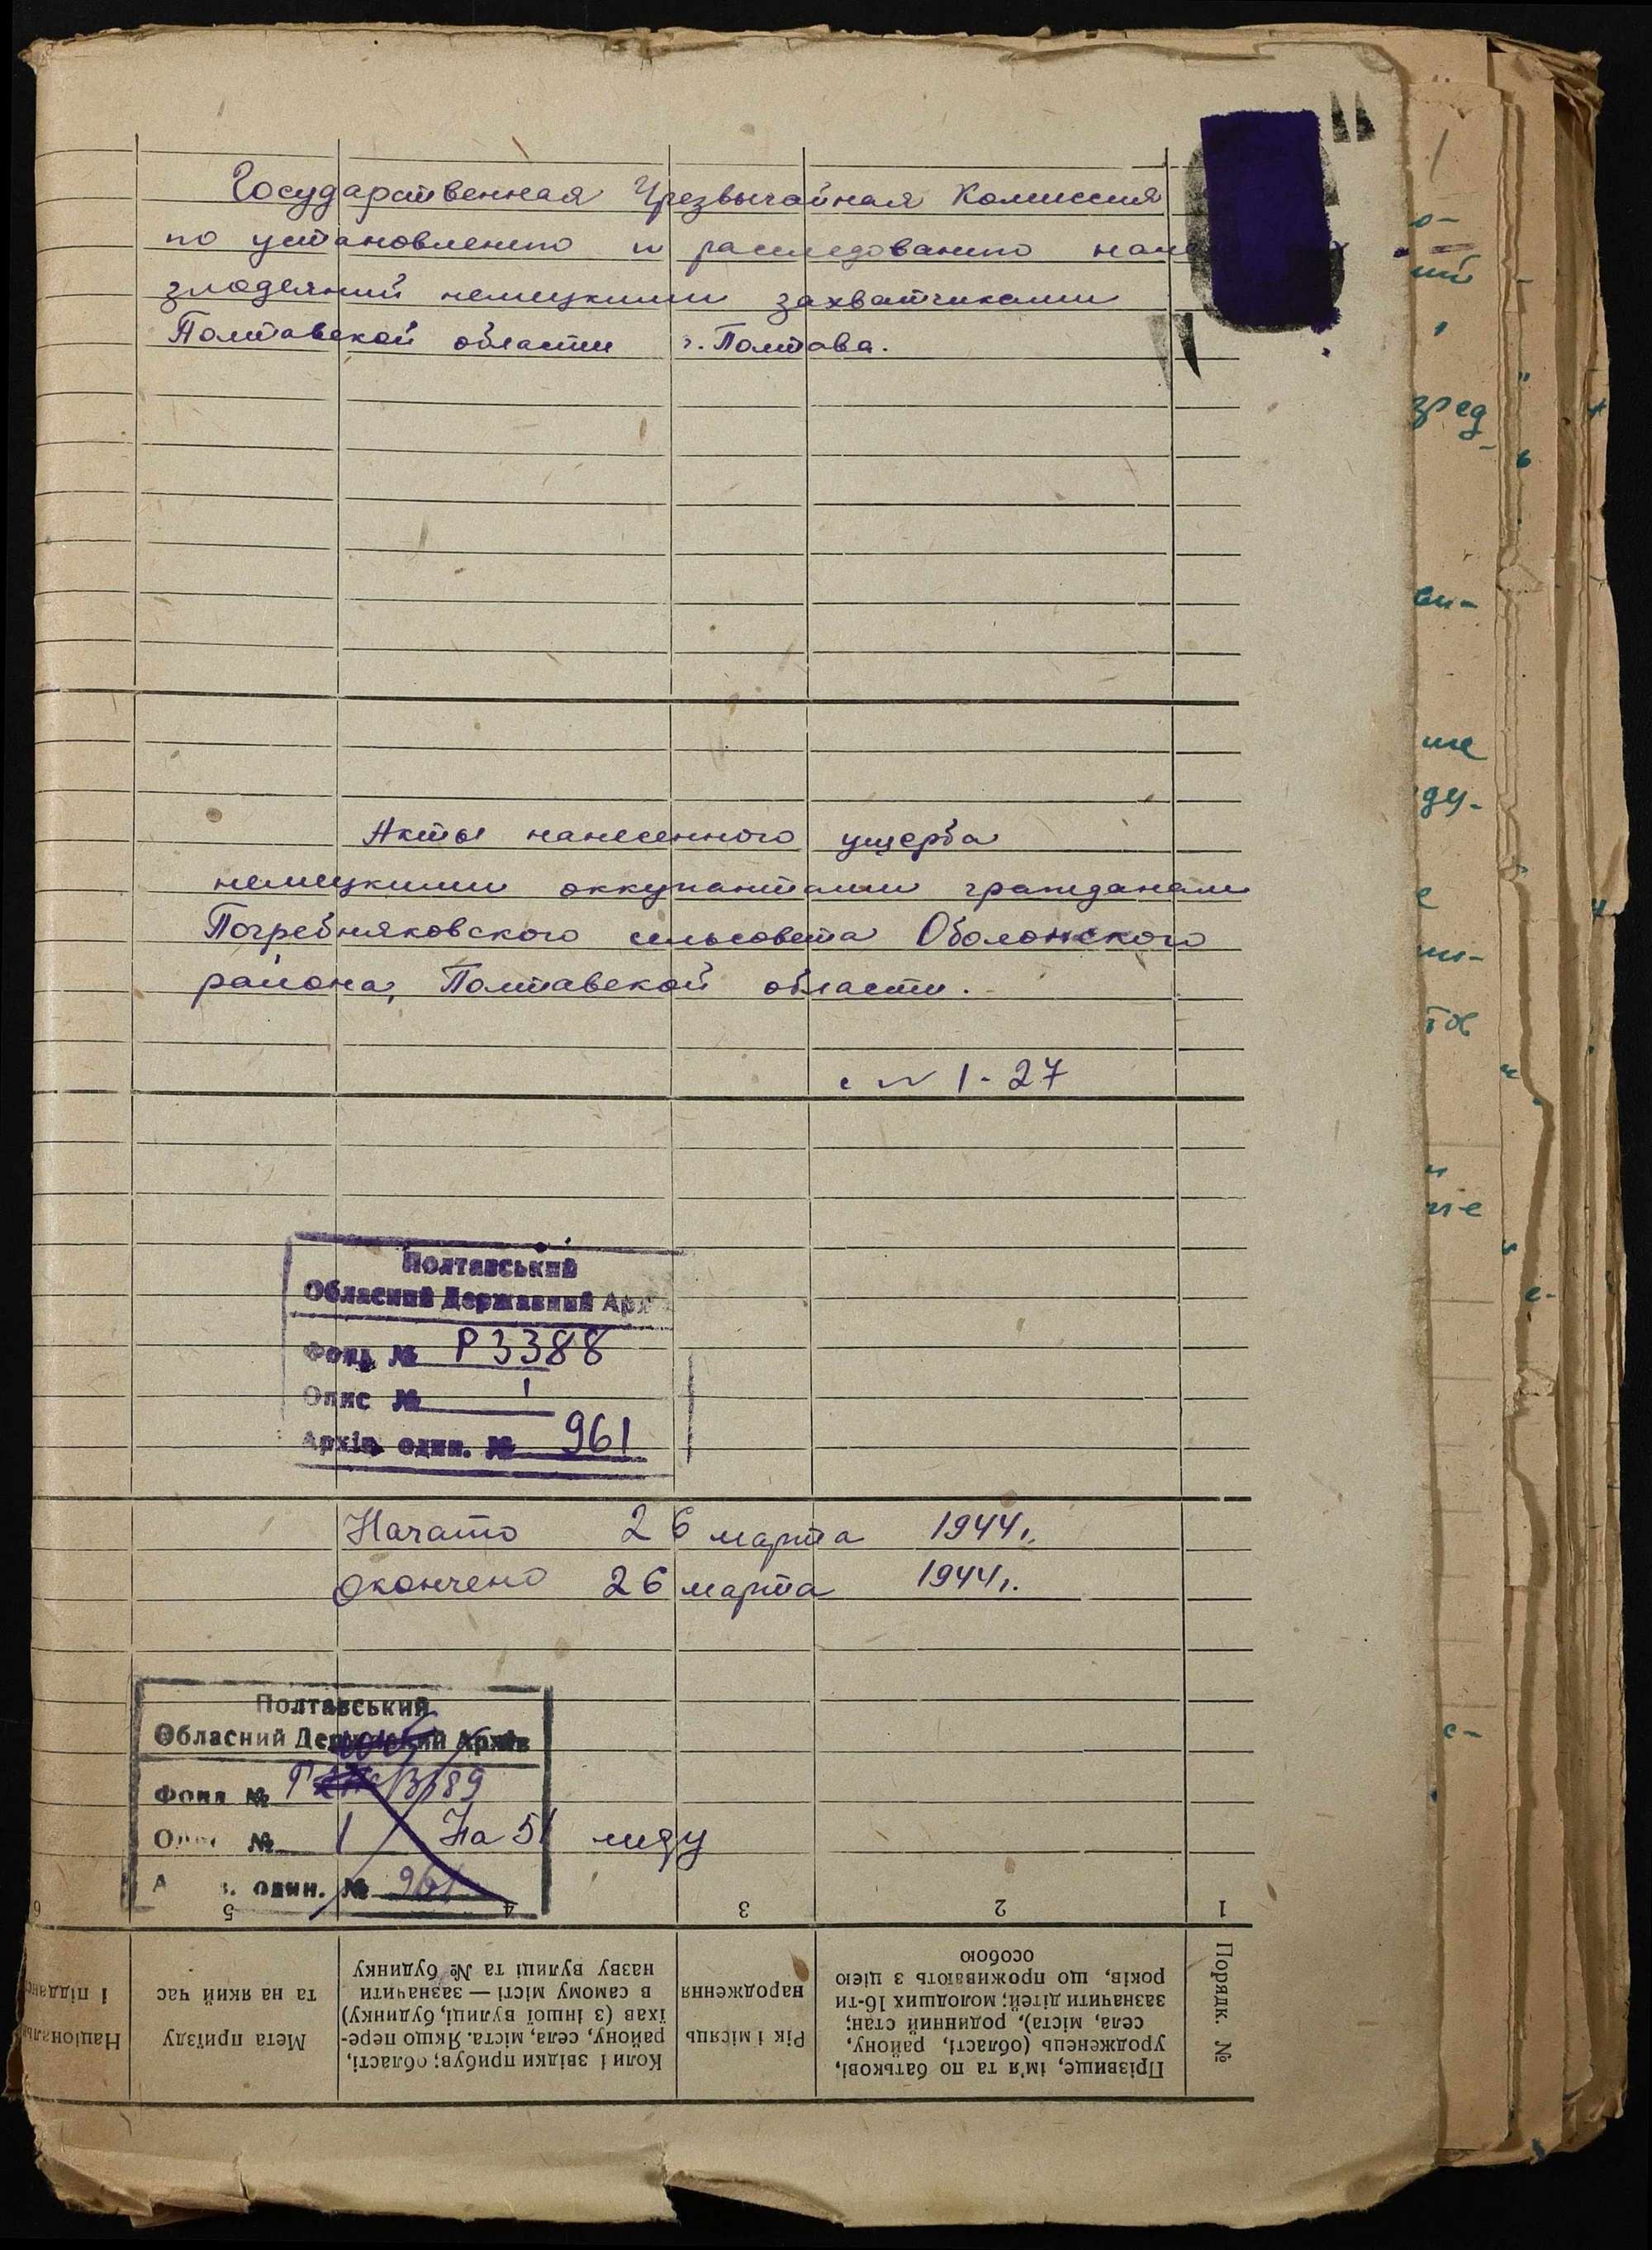 Государственная Чрезвычайная Комиссия
по установлению и расследованию нане
злодеяний немецкими захватчиками
Полтавской области г. Полтава.
Акты нанесенного ущерба
немецкими оккупантами гражданам
Погребняковского сельсовета Оболонского
района, Полтавской области.
с № 1-27
Полтавський
Обласний Державний Арх
Фонд № Р3388
Опис № 1
Архів. один. № 961
Начато 26 марта 1944г.
Окончено 26 марта 1944г.
Полтавський
Обласний Державний Архів
Фонд №
Опис № 1 На 51 лиду
один. № 961
6 5 4 3 2 1
Порядк. №
Прізвище, ім'я та по батькові,
уродженець (області, району,
села, міста), родинний стан;
зазначити дітей; молодших 16-ти
років, що проживають з цією
особою
Рік і місяць
народження
Коли і звідки прибув; області,
району, села, міста. Якщо пере-
їхав (з іншої вулиці, будинку)
в самому місті — зазначити
назву вулиці та № будинку
Мета приїзду
та на який час
Націонал
і підданс